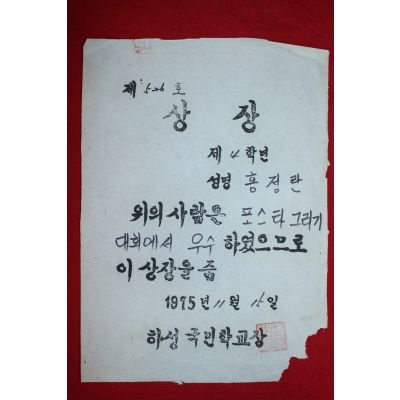 제 526 호
상장
제 4 학년
성명 홍정란
위의 사람은 포스타 그리기
대회에서 우수 하였으므로
이 상장을 줌
1975년 11월 일
하성 국민학교장